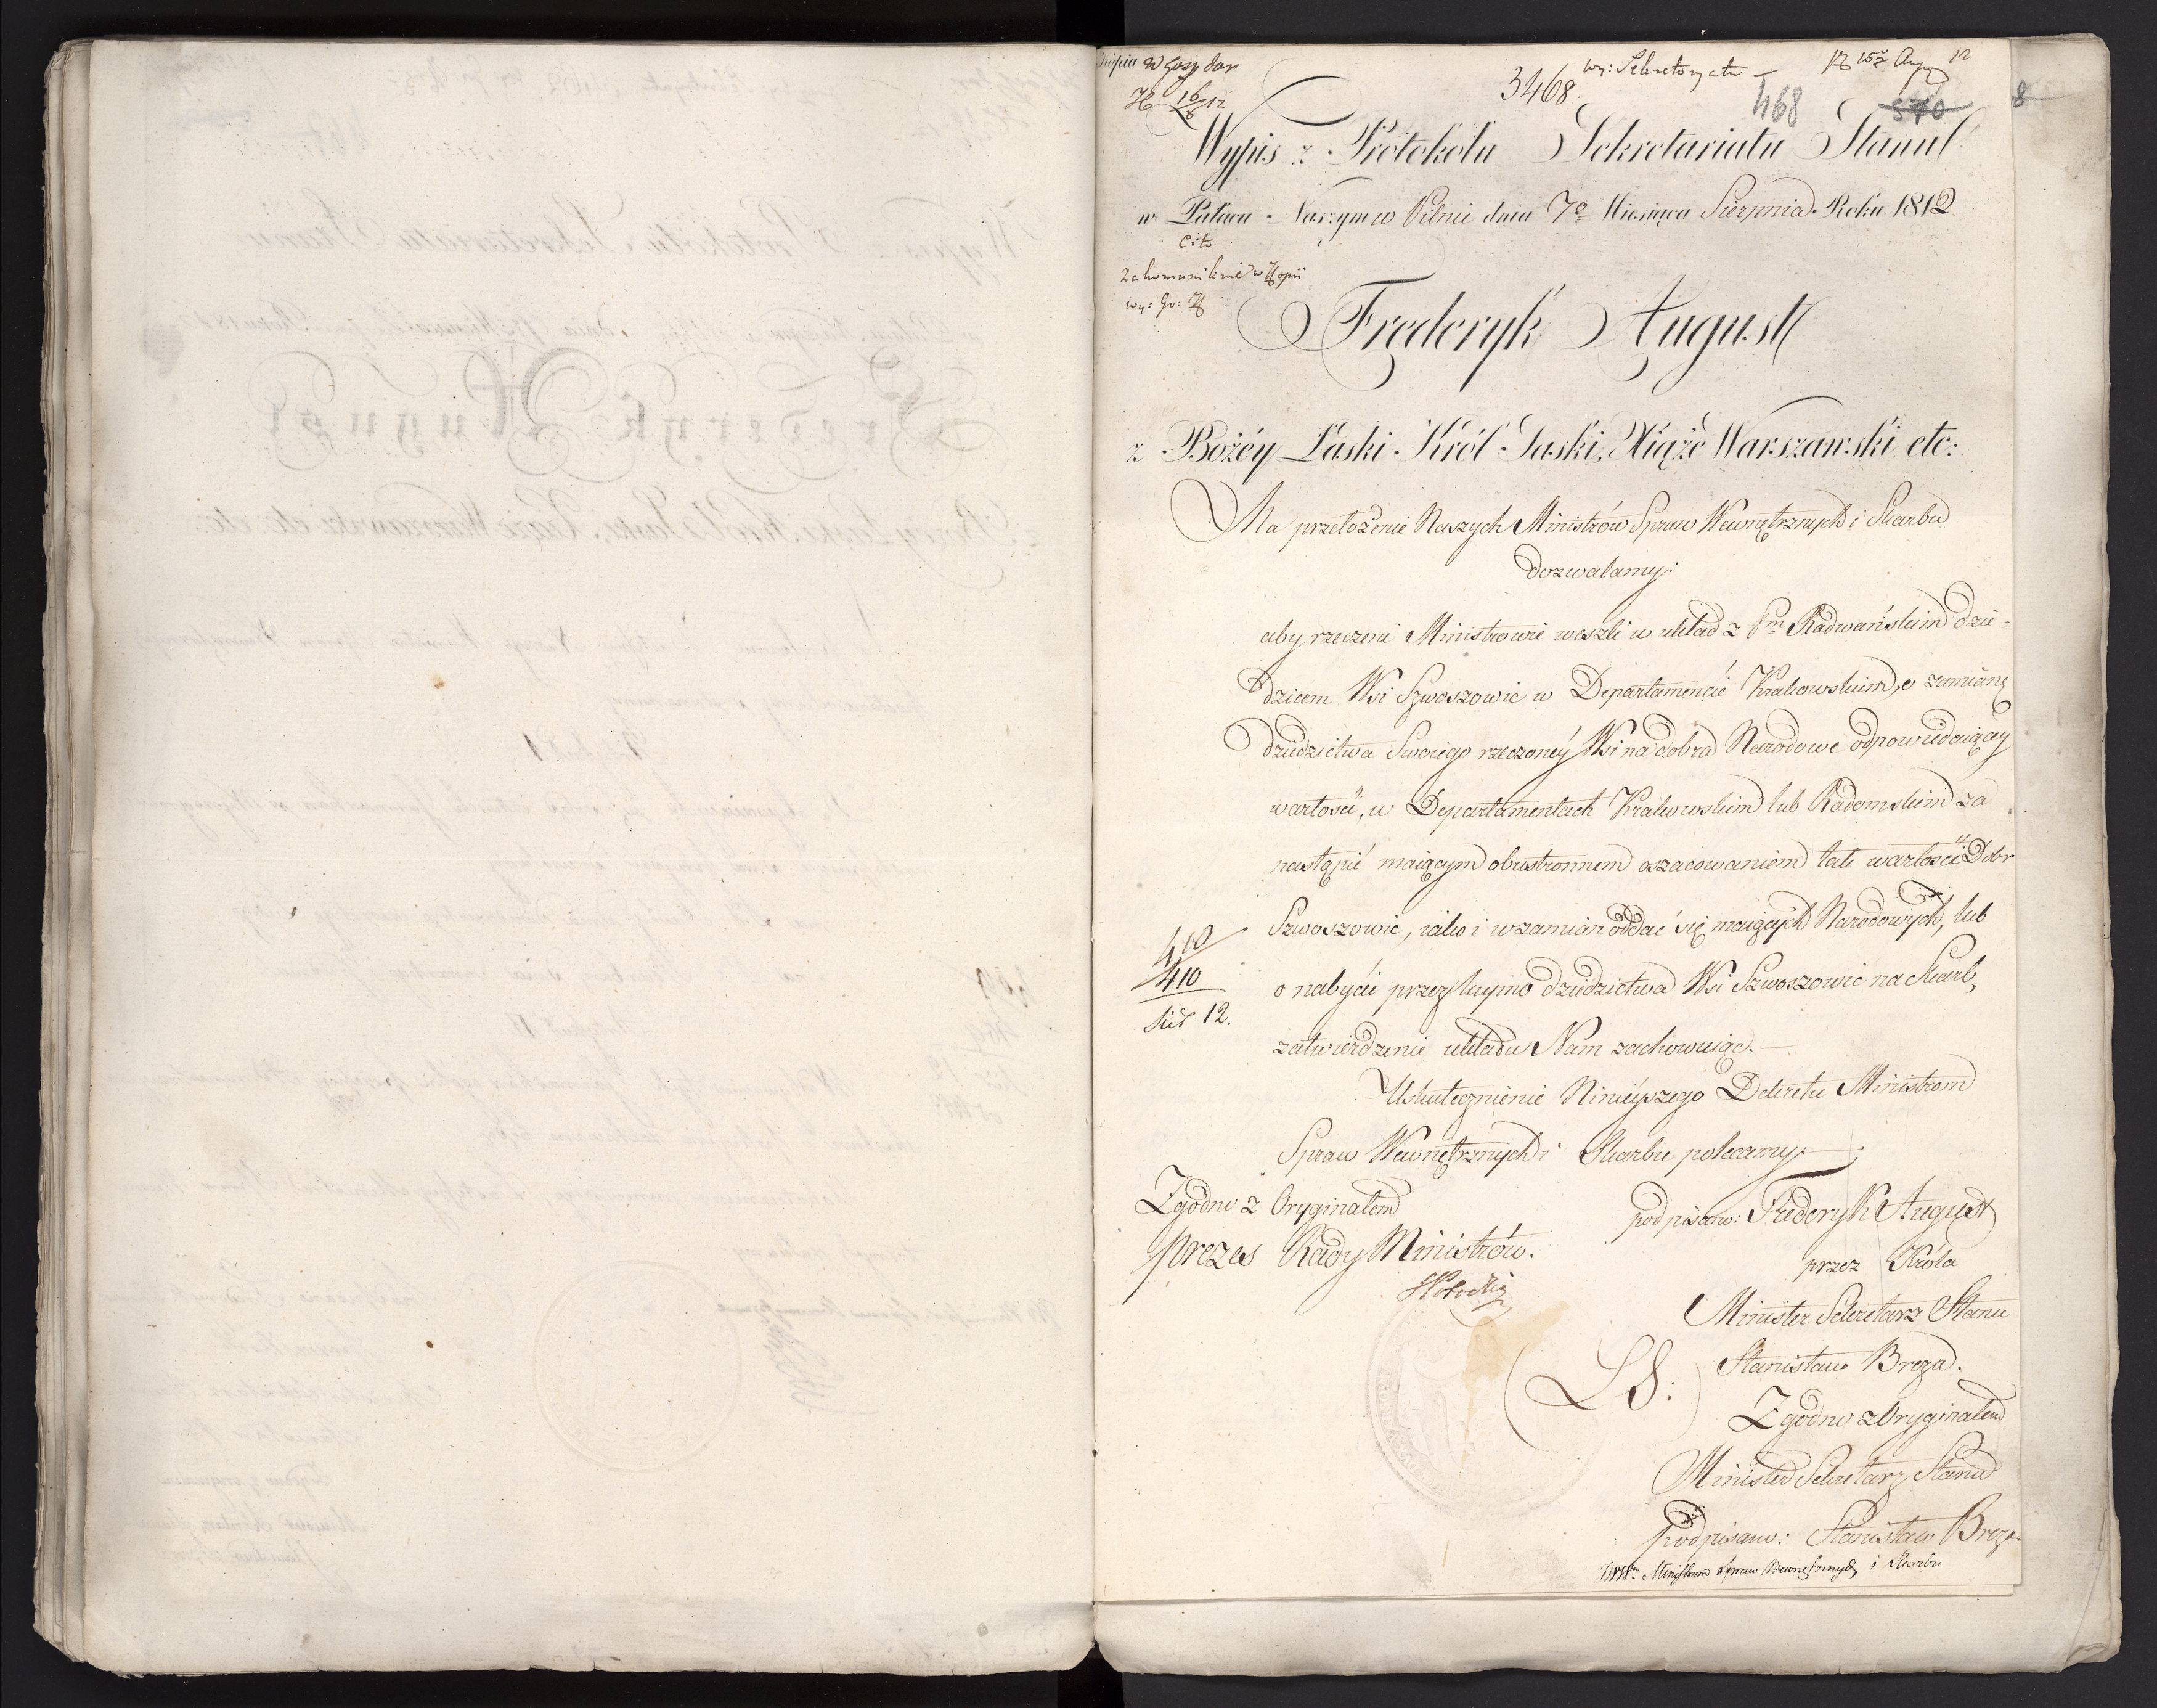 kopia w Gosp dan
16/8 12
3468.
wy: Sekretoryatu
15 Aug 12
468
570
8
Wypis z Protokółu Sekretariatu Stanu
w Pałacu Naszym w Pilnic dnia 7o Miesiąca Sierpnia Roku 1812
Cito
Zakomunikować w Kopii
wy: Go:
Fręderyk August
z Bożéy Łaski Król Saski, Xiążę Warszawski etc:
Na przełożenie Naszych Ministrów Spraw Wewnętrznych i Skarbu
dozwalamy:
aby rzeczeni Ministrowie weszli w układ z Pm Radwańskim dzie=
dzicem Wsi Szwoszowic w Departamencie Krakowskim, o zamianę
dziedzictwa Swoiego rzeczonéy Wsi na dobra Narodowe odpowiedaiącey
wartości, w Departamentach Krakowskim lub Radomskim za
nastąpić maiącym obustronnem oszacowaniem tak wartości Dobr
Szwoszowic, iako i w zamian oddać się maiących Narodowych, lub
o nabycie przez kupno dziedzictwa Wsi Szwoszowic na Skarb,
zatwierdzenie układu Nam zachowuiąc.—
410
410
Sier 12.
Uskutecznienie Ninieyszego Dekretu Ministrom
Spraw Wewnętrznych i Skarbu polecamy.—
Zgodno z Oryginałem
Prezes Rady Ministrów.
podpisano: Frideryk August
przez Króla
Minister Sekretarz Stanu
(LS:)
Stanisław Breza.
Zgodno z Oryginałem
Minister Sekretarz Stanu
podpisano: Stanisław Breza
Ministrom Spraw Wewnętrznych i Skarbu